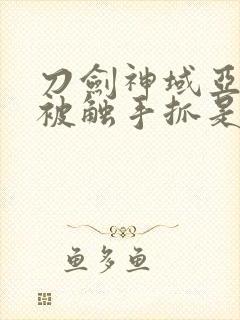 刀劍神域亞
被触手抓是
鱼多鱼